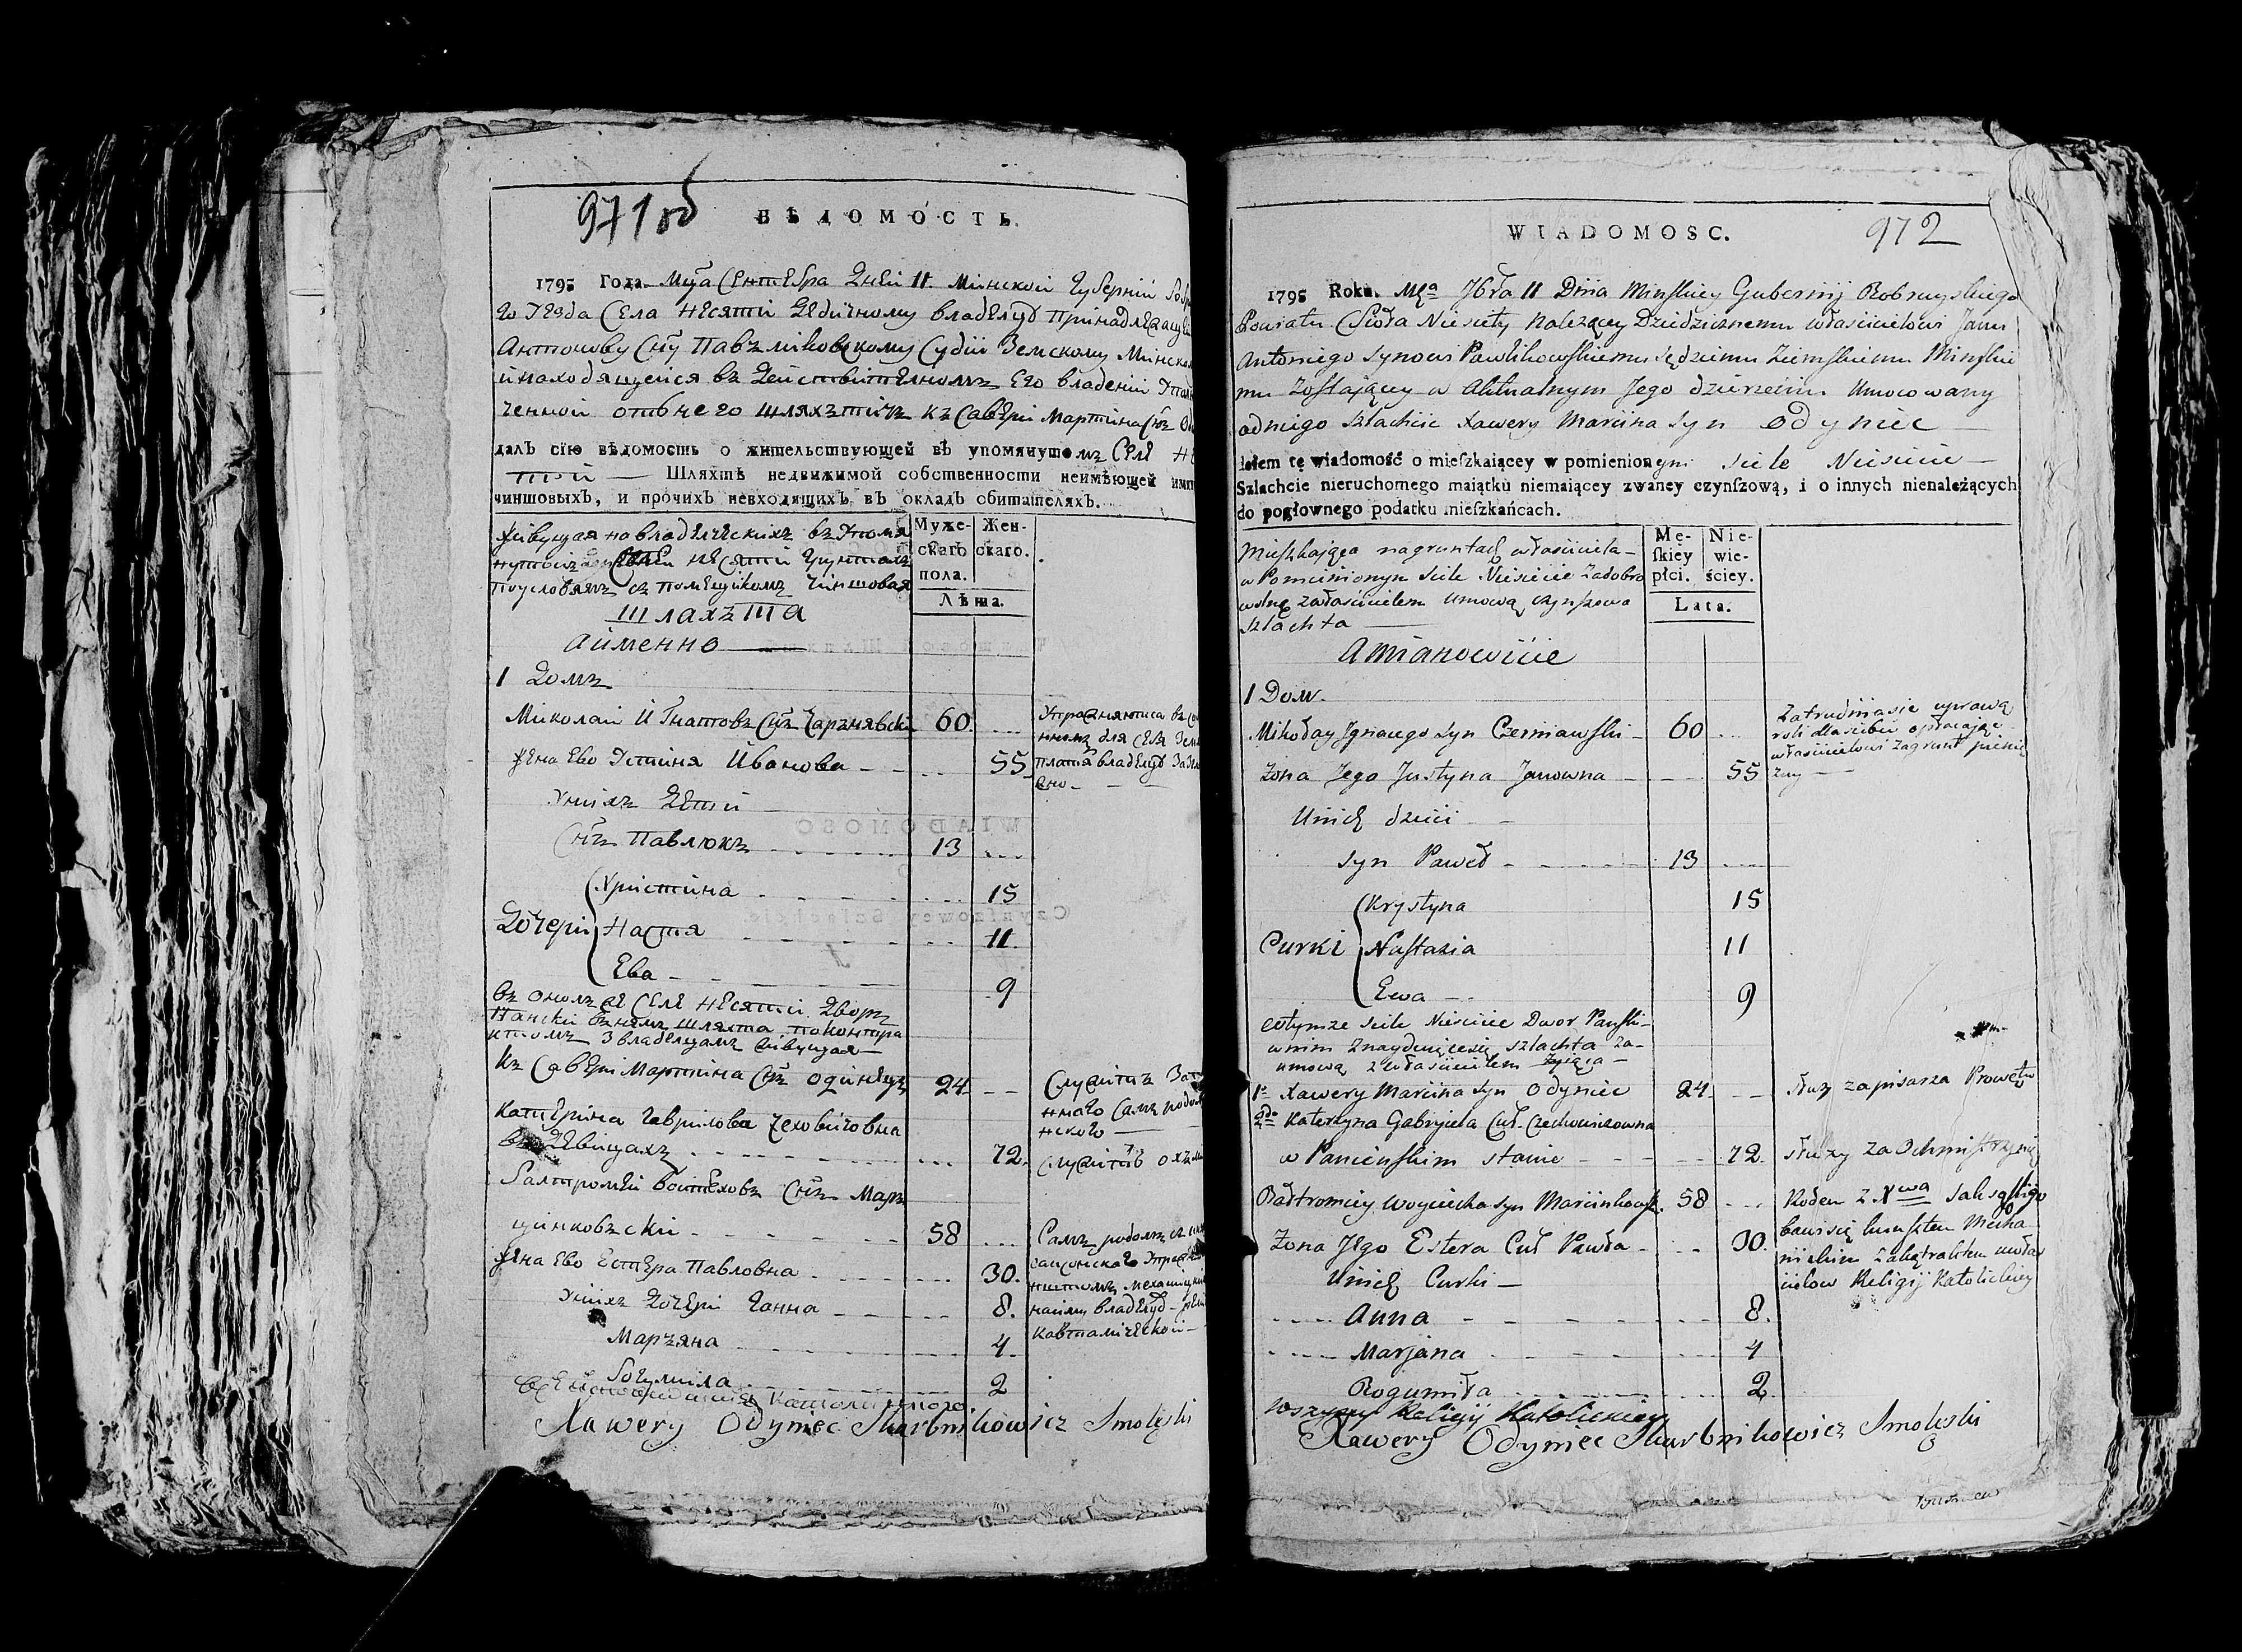 971 об
ВѢДОМОСТЬ.
1795 Года. Мца Сентебра Дней 11. Минской Губерній
го Уезда Села Несяти Дедичному владелцу принадлежащей
Антонову Сну Павликовскому Судіи Земскому Минском
и находящейся въ действителномъ Его владеній
ченной отъ него шляхтичъ Ксаверы Мартина Снъ
далъ сїю вѣдомость о жительствующей въ упомянутомъ Селе Не
сятой — Шляхтѣ недвижимой собственности неимѣющей
чиншовыхъ, и прочихъ невходящихъ въ окладъ обитателяхъ.
Живущая на владелческихъ въ упомя
нутомъ Селе Несяти грунтахъ
по условиямъ съ помещикомъ Чиншовая
Шляхта
а именно
Муже- Жен-
скаго скаго.
пола.
Лѣта.
1 Домъ
Миколай Игнатовъ Снъ Чарнявски 60
жена Ево Устиня Иванова 55
Упражняютса въ
для себя
платя владелцу
У нихъ Дети
Снъ Павлюкъ 13
Христина 15
Дочери Настя 11.
Ева 9
въ ономъ же Селе Несяти Дворъ
Панский въ немъ шляхта по контра
ктомъ з владелцамъ живущая
Ксаверы Мартина Снъ Одинецъ 24
Служитъ
Катерина Гаврилова Чеховичовна
въ Девицахъ 72.
Служитъ
Балтромей Войтехов Снъ Мар
цинковски 58
Самъ родомъ
жена Ево Естера Павловна 30.
У нихъ Дочери Ганна 8.
Маръяна 4.
Богумила 2
Xawery Odyniec Skarbnikowicz Smoleński
972
WIADOMOSC.
1795 Roku. Mca 7bra 11 Dnia Minskiey Gubernij Bobruyskiego
Powiatu Sioła Niesiety należącey Dziedzicznemu właścicielowi Janu
Antoniego synowi Pawlikowskiemu sędziemu Ziemskiemu Minskie
mu zostającey w Aktualnym Jego dzierżeniu Umocowany
od niego szlachcic Xawery Marcina syn Odyniec
dałem tę wiadomość o mieſzkaiącey w pomienionym siele Niesiecie
Szlachcie nieruchomego maiątku niemaiącey zwaney czynſzową, i o innych nienależących
do pogłownego podatku mieſzkańcach.
Mieszkająca na gruntach właściciela
w Pomienionym siele Niesiecie za dobro
wolną z właścicielem umową czynszowa
szlachta
Mę- Nie-
ſkiey wie-
płci. ściey.
Lata.
A Mianowicie
1 Dom.
Mikołay Jgnacego syn Czerniawski 60
Zatrudniasie uprawą
roli dla siebie opłacając
właścicielowi za grunt pienię
żny
Zona Jego Justyna Janowna 55
U nich dzieci
syn Paweł 13
Krystyna 15
Curki Nastazia 11
Ewa 9
w tymże siele Niesiecie Dwor Panski
w nim znayduiącesię szlachta za
umową z właścicielem żyiąca
1e Xawery Marcina syn Odyniec 24.
służy za pisarza Prowentu
2do Katerzyna Gabryiela Cur. Czechowiczowna
w Panieńskim stanie 72.
służy za Ochmistrzynię
Bałtromiey Woyciecha syn Marcinkowski. 58
Rodem z Xwa Saksąskiego
Zona Jego Estera Cur Pawła 30.
bawi się kunsztem Mecha
nickim za kątraktem u wła
U nich Curki
ściciela Religij Katolickiey
Anna 8.
Marjana 4
Bogumiła 2
wszyscy Religij Katolickiey
Xawery Odyniec Skarbnikowicz Smoleński